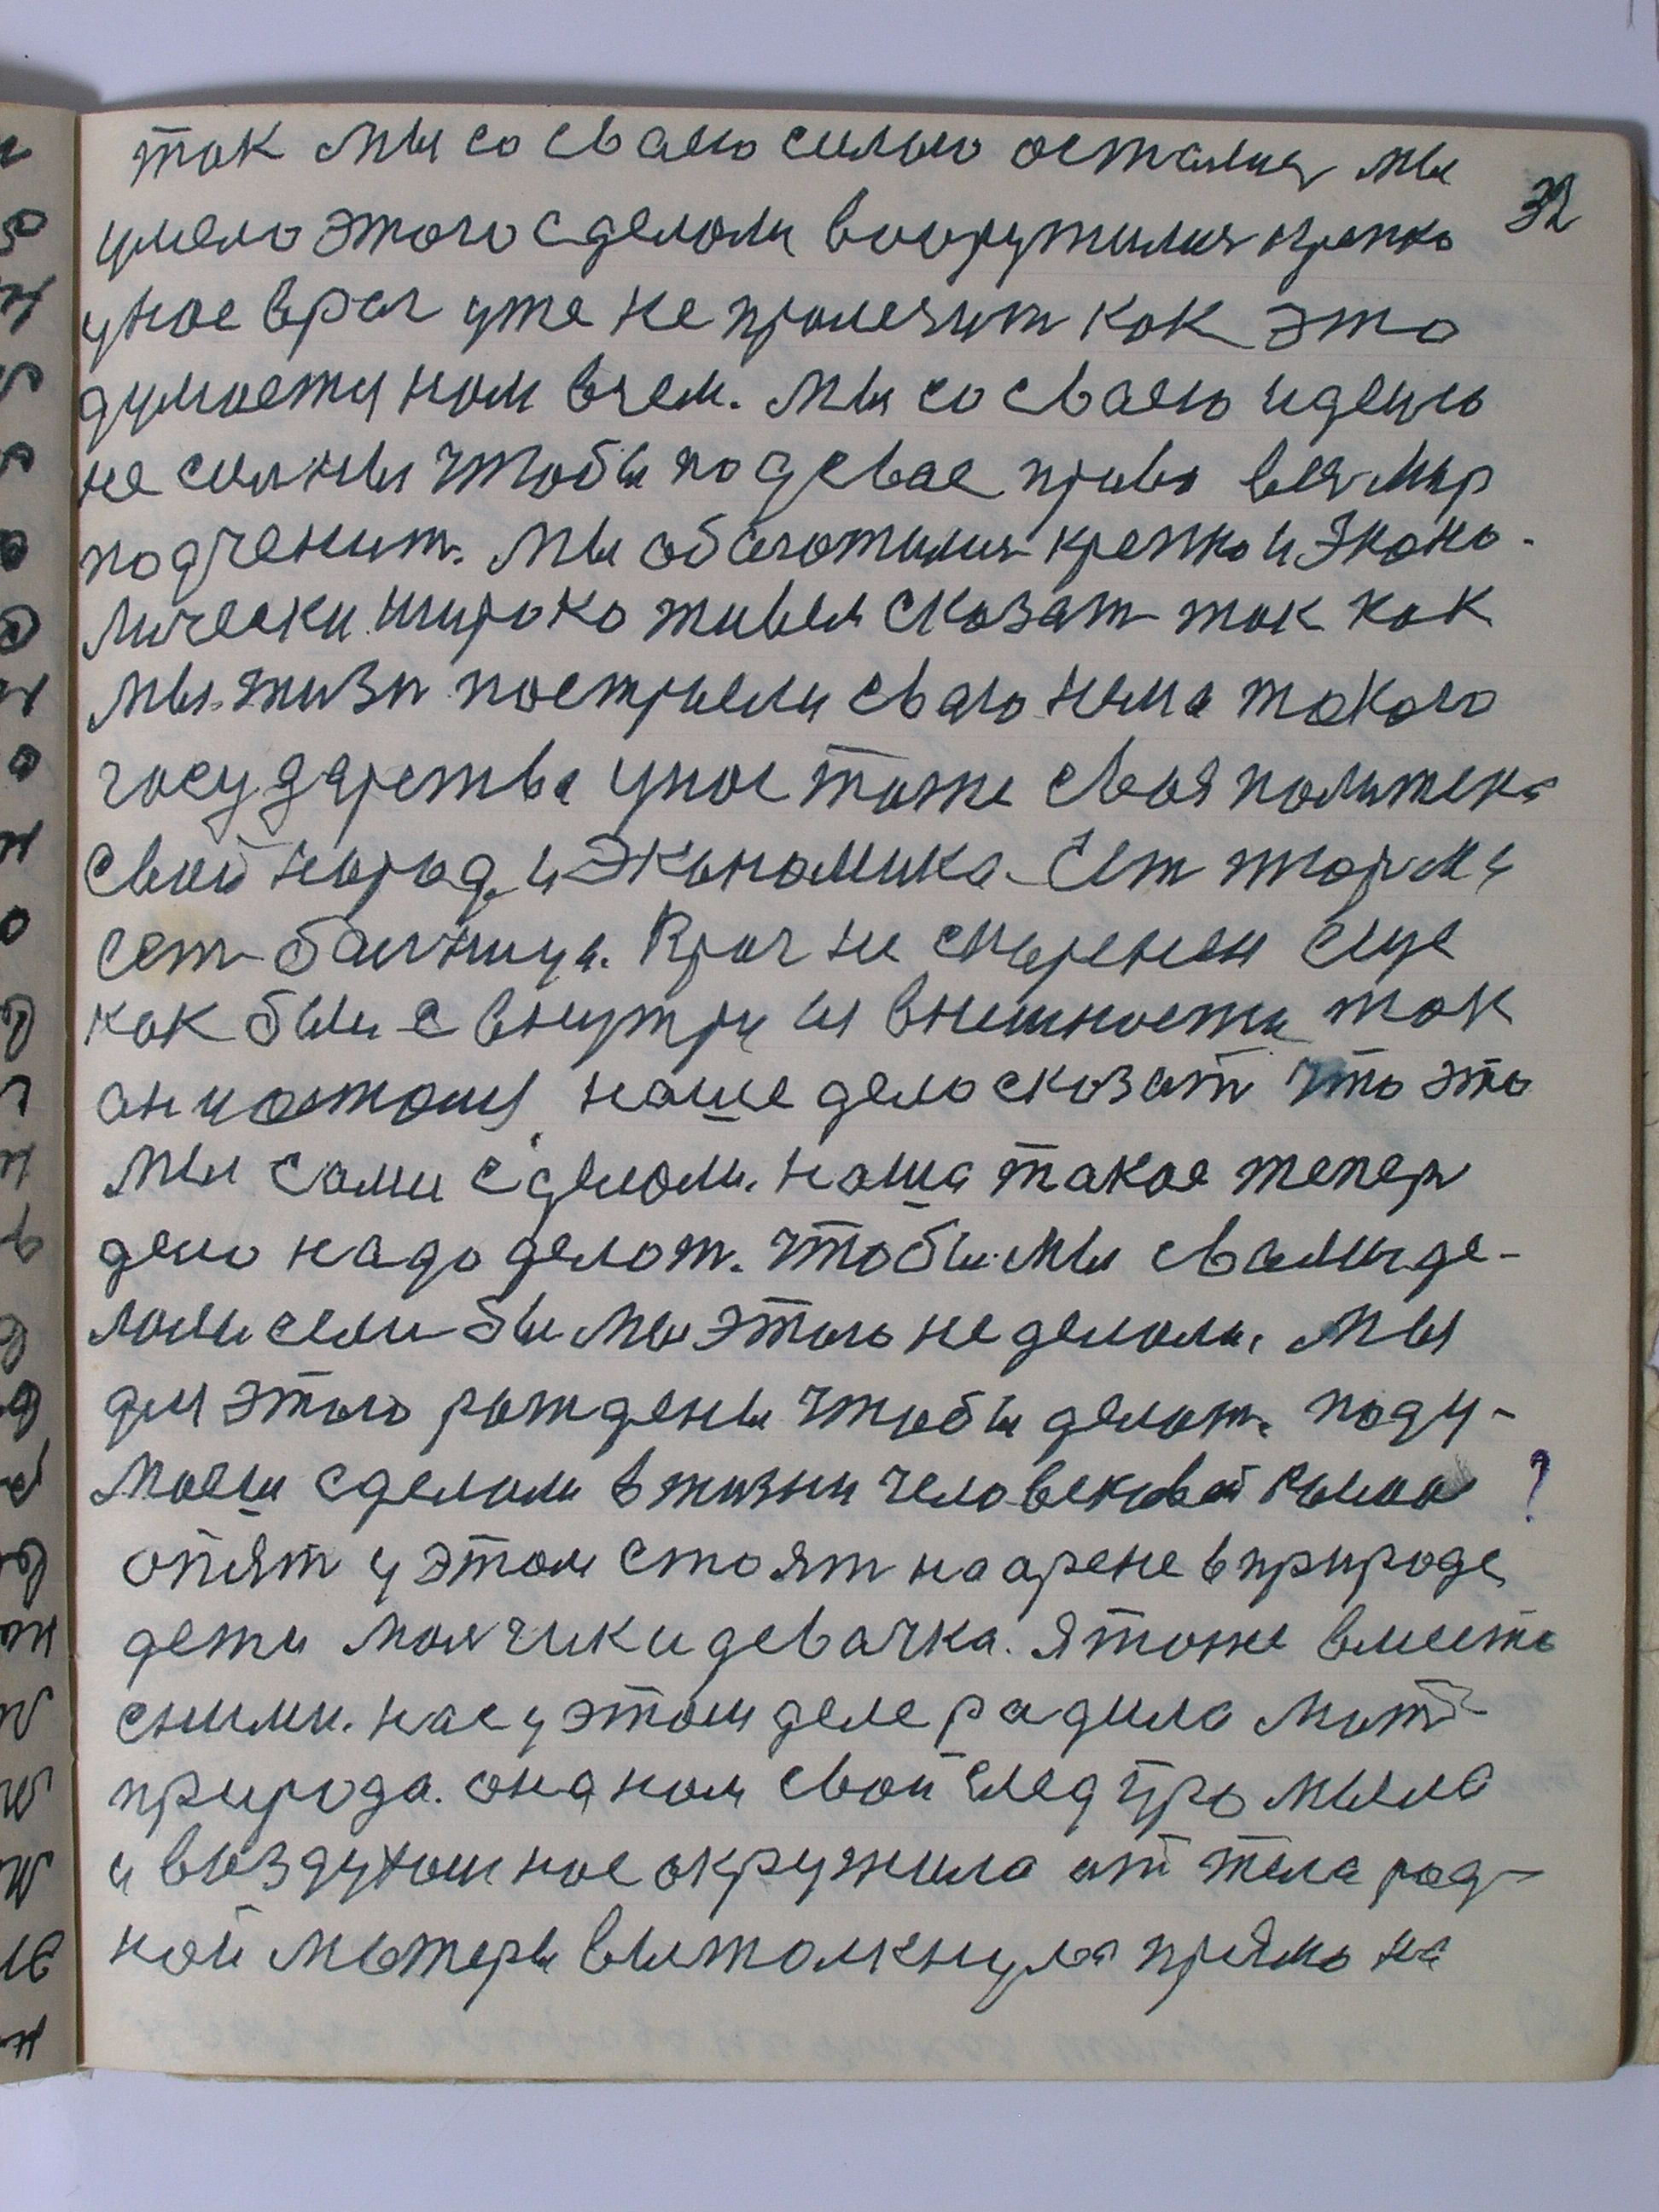 так мы со сваею силою осталися мы
32
умело этого сделали вооружилися крепко
унас враг уже не пролезит как это
думается нам всем. Мы со сваею идеею
не сильны чтобы под свае право весь мир
подченит. Мы обогатилися крепко и эконо-
мически широко живем сказат так как
мы жизн построели сваю нема такого
государства унас тоже своя политека
свой народ и экономика. Ест тюрма
ест балница. Враг не смерен еще
как был с внутри и внешности так
он и остался наше дело сказат что это
мы сами сделали. наша такое тепер
дело надо делат. чтобы мы с вами де-
лали если бы мы этого не делали. мы
для этого рождены чтобы делат. поду-
маеш сделали в жизни человек
опят у этом стоят на арене в природе
дети малчик и девачка. я тоже вместе
сними. нас у этом деле радила мат
природа. она нам свой след промыла
и воздухом нас окружила от тела род-
ной матери вытолкнула прямо на